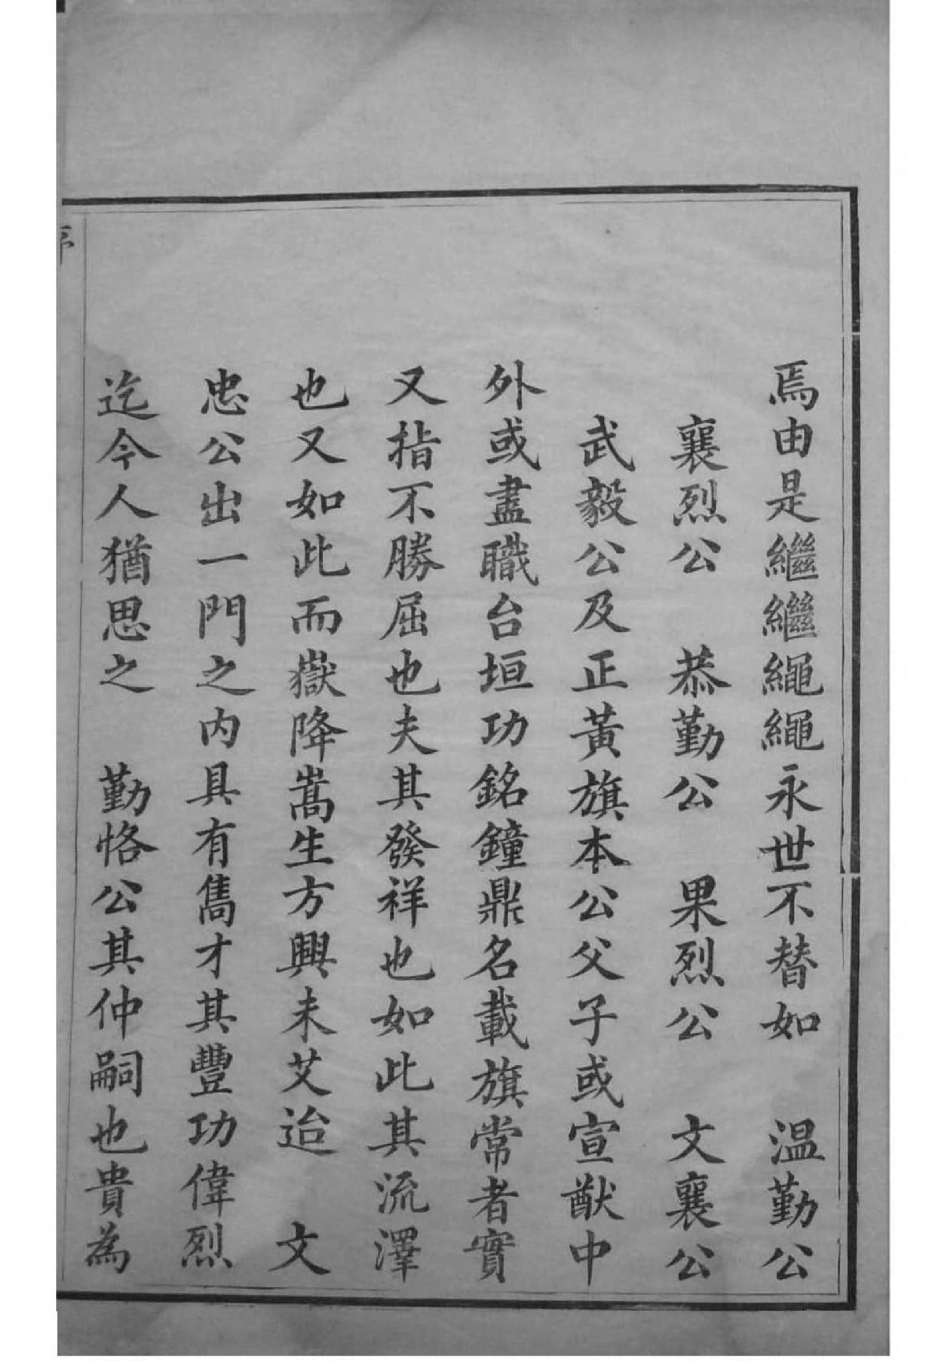 焉由是繼繼繩繩永世不替如　溫勤公
襄烈公　恭勤公　果烈公　文襄公
武毅公及正黃旗本公父子或宣猷中
外或盡職台垣功銘鐘鼎名載旗常者實
又指不勝屈也夫其發祥也如此其流澤
也又如此而嶽降嵩生方興未艾迨　文
忠公出一門之内具有雋才其豐功偉烈
迄今人猶思之　勤恪公其仲嗣也貴為